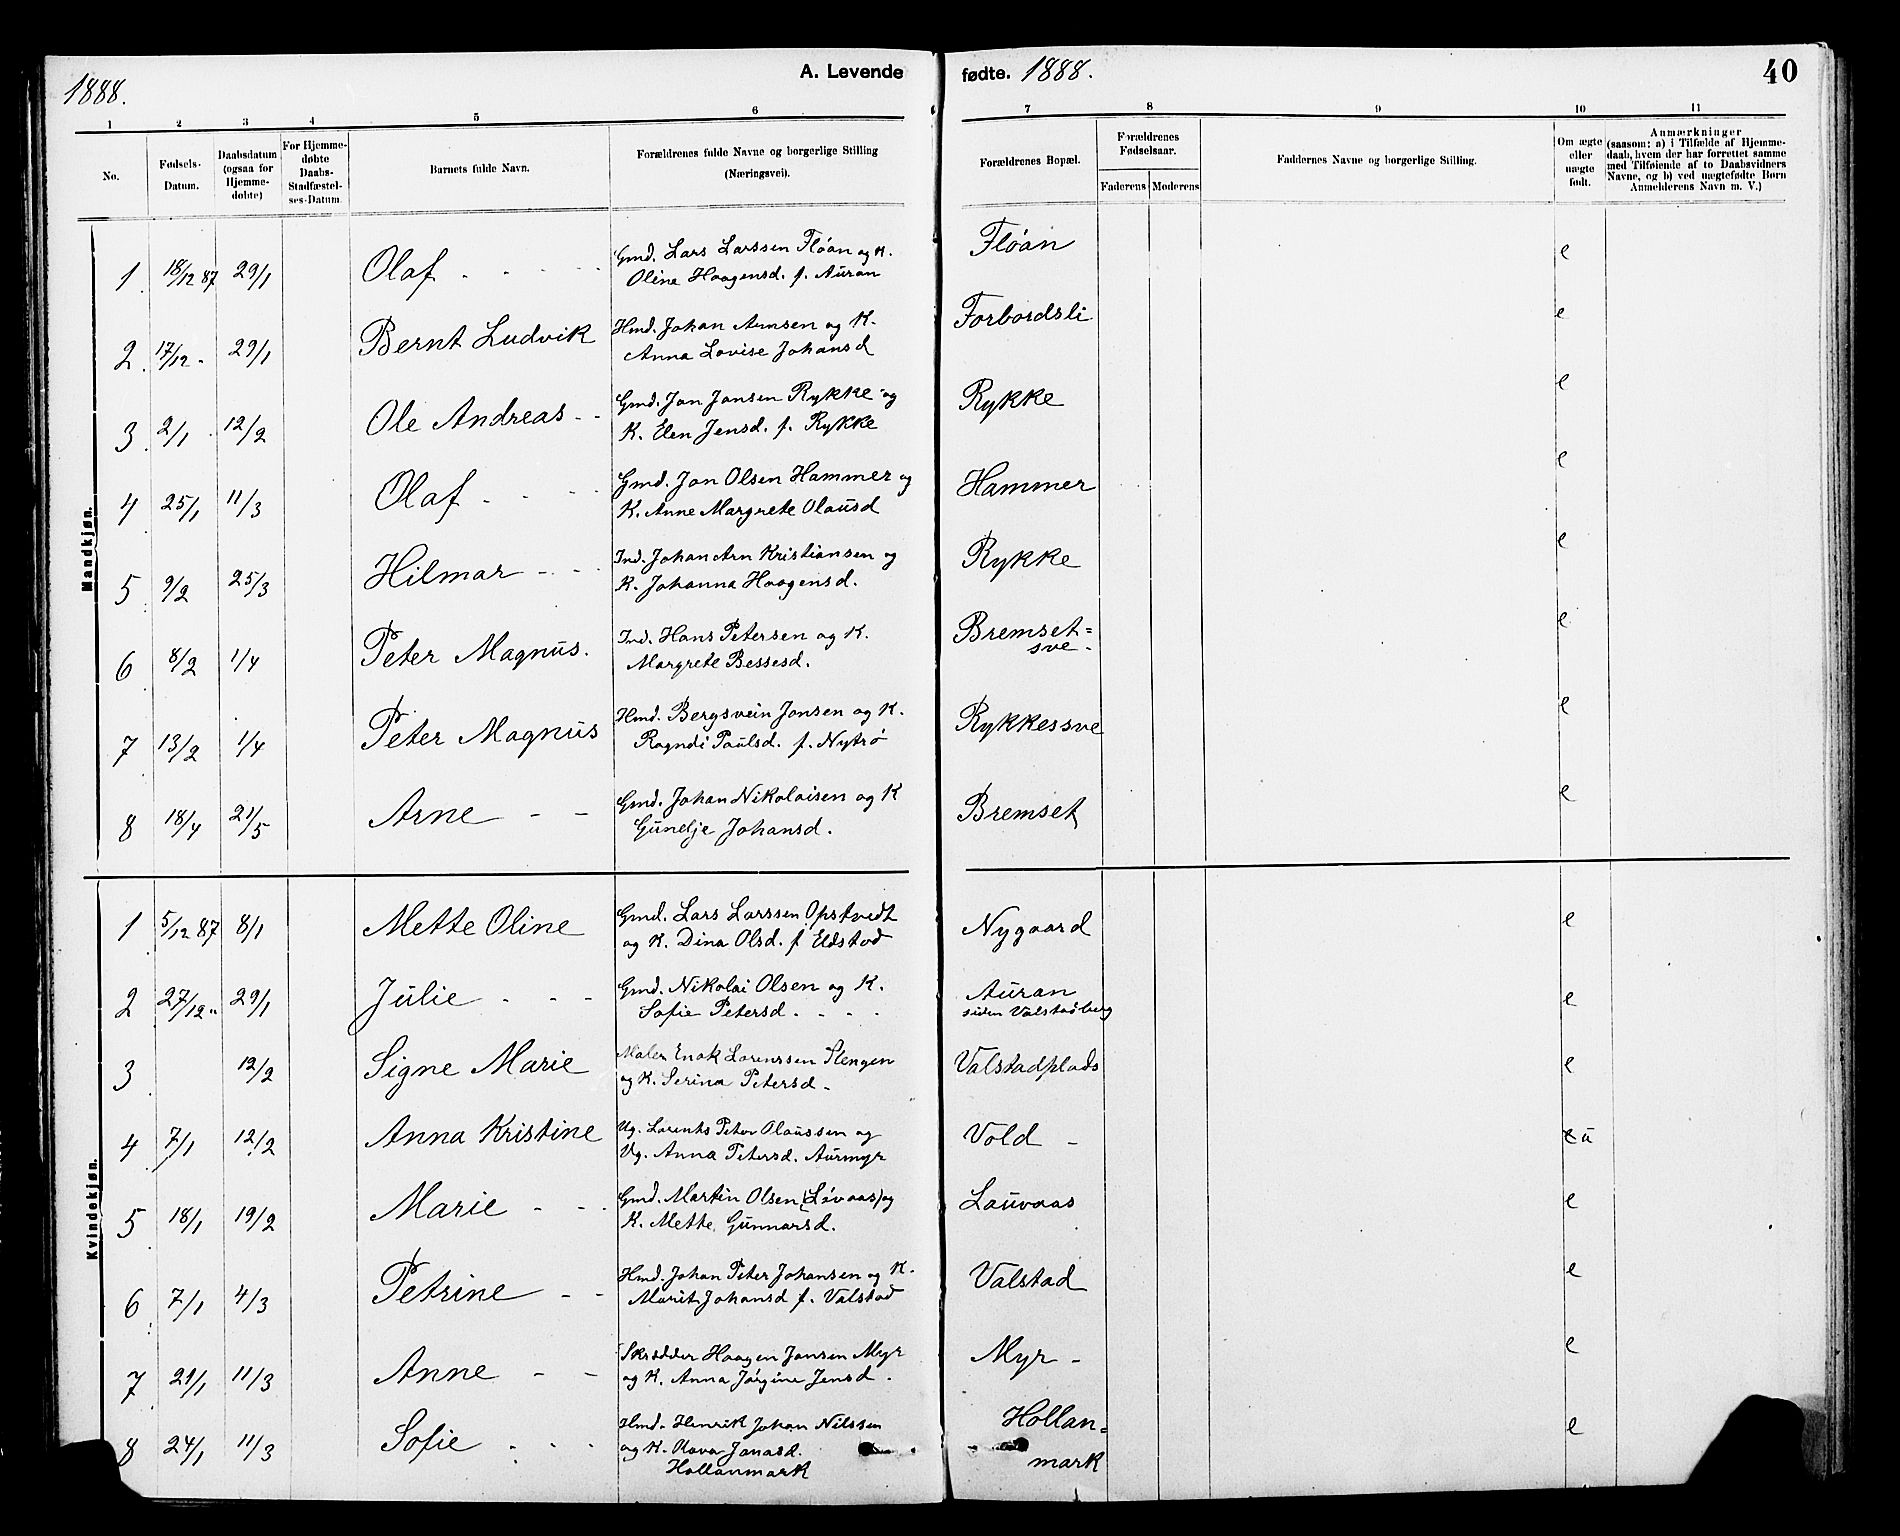 1888.
A. Levende fødte. 1888.
40
1 2 3 4 5 6 7 8 9 10 11
No.
Fødsels-Datum.
Daabsdatum (ogsaa for Hjemme-døbte)
For Hjemme-døbte Daabs-Stadfæstel-ses-Datum.
Barnets fulde Navn.
Forældrenes fulde Navne og borgerlige Stilling (Næringsvei).
Forældrenes Bopæl.
Forældrenes Fødselsaar.
Faderens Moderens
Faddernes Navne og borgerlige Stilling.
Om ægte eller uægte født.
Anmærkninger (saasom: a) i Tilfælde af Hjemme-daab, hvem der har forrettet samme med Tilføiende af to Daabsvidners Navne, og b) ved uægtefødte Børn Anmelderens Navn m. V.)
Mandkjøn.
1. 18/12 87 29/1 Olaf - - - - Gmd. Lars Larssen Fløan og K. Fløan e
Oline Haagensd. f. Auran
2. 17/12 - 29/1 Bernt Ludvik Hmd. Johan Arnsen og K. Forbordsli e
Anna Lovise Johansd
3 2/1 12/2 Ole Andreas - - Gmd. Jon Jonsen Rykke og Rykke e
K. Elen Jensd. f. Rykke
4 25/1 11/3 Olaf - - - - Gmd. Jon Olsen Hammer og Hammer e
K. Anne Margrete Olausd
5. 9/2 25/3 Hilmar - - - Ind. Johan Arn Kristiansen og Rykke e
K. Johanna Haagensd.
6 8/2 1/4 Peter Magnus. Ind. Hans Petersen og K. Bremset= e
Margrete Bessesd. sve -
7 13/2 1/4 Peter Magnus Hmd. Bergsvein Jonsen og K. Rykkessve e
Ragndi Paulsd. f. Nytrø
8 18/4 21/5 Arne - - Gmd. Johan Nikolaisen og K Bremset e
Gunelje Johansd.
Kvindekjøn.
1 5/12 87 8/1 Mette Oline Gmd. Lars Larssen Opstvedt Nygaard e
og K. Dina Olsd. f Eldstad
2 27/12 " 29/1 Julie - - - Gmd. Nikolai Olsen og K. Auran e
Sofie Petersd. - - - siden Valstadberg
3 12/2 Signe Marie Maler Enok Lorenssen Stengen Valstadplads e
og K. Serina Petersd -
4 7/1 12/2 Anna Kristine Ug. Lorents Peter Olaussen og Vold - u
Ug. Anna Petersd. Aurmyr
5 18/1 19/2 Marie - - - Gmd. Martin Olsen (Løvaas) og Lauvaas e
K. Mette Gunnarsd.
6 7/1 4/3 Petrine - - Hmd. Johan Peter Johansen og K. Valstad e
Marit Johansd f. Valstad
7 29/1 11/3 Anne - - Skrædder Haagen Jonsen Myr Myr - e
og K. Anna Jørgine Jensd.
8 24/1 11/3 Sofie - - - Hmd. Henrik Johan Nilssen Hollan= e
og K. Jonasd. mark
Hollanmark